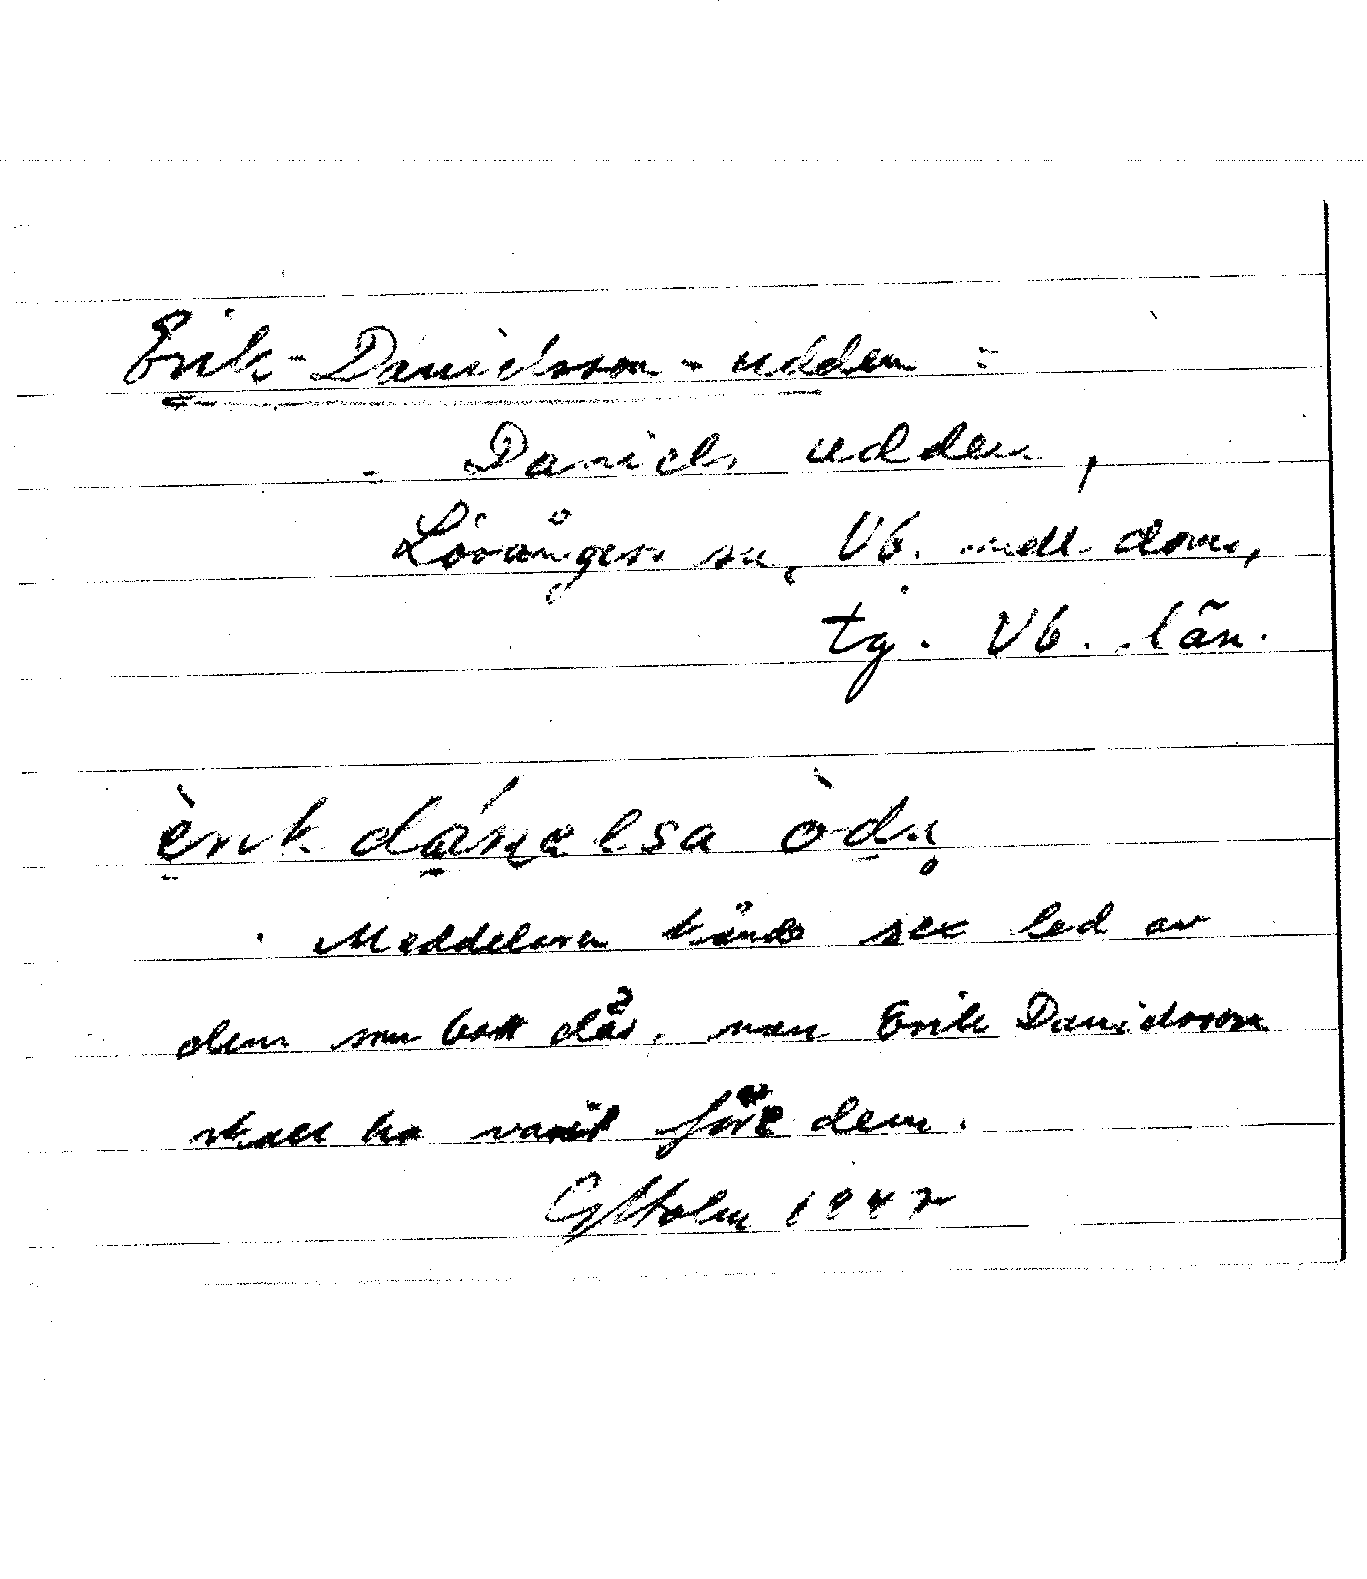 Erik-Danielsson-udden =
= Daniels udden,
Lövångers sn, Vb. medl. doms,
tg. Vb. län.
èrik dánelsa òdn̥
Meddelaren kände sex led av
dem som bott där, men Erik Danielsson
skall ha varit före dem.
G Holm 1947